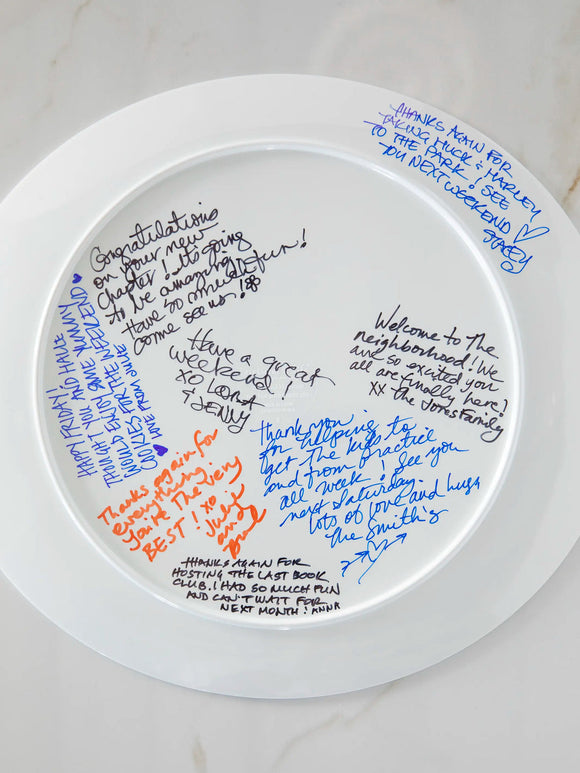 THANKS AGAIN FOR
TAKING HUCK & HARLEY
TO THE PARK! SEE
YOU NEXT WEEKEND ♡
STACEY
Congratulations
on your new
chapter! Its going
to be amazing!
Have so much fun!
come see us!
HAPPY FRIDAY!
THOUGHT YOU AND HAVE
WOULD ENJOY SOME YUMMY
COOKIES FOR THE WEEKEND ♥
♥ LOVE FROM JULIE
Have a great
weekend!
XO LORA
& JENNY
Welcome to The
neighborhood! We
are so excited you
all are finally here!
XX - The Jones Family
Thank you
for helping to
get the kids to
and from practice
all week! See you
next Saturday.
Lots of love and hugs
The Smith's
Thanks again for
everything.
You're The very
BEST! XO
Julie
and
THANKS AGAIN FOR
HOSTING THE LAST BOOK
CLUB. I HAD SO MUCH FUN
AND CAN'T WAIT FOR
NEXT MONTH! ANNA